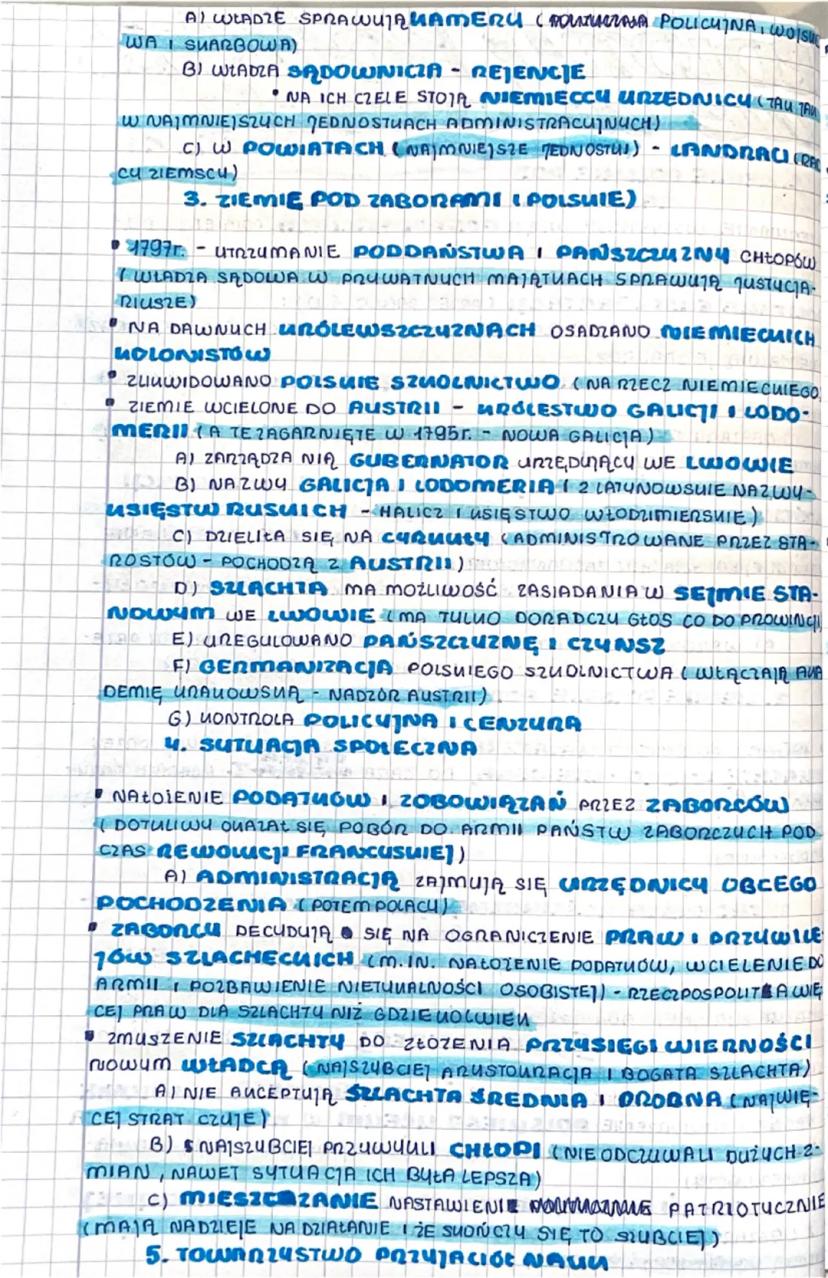 A) WŁADZE SPRAWUJĄ KAMERY ( POLICYJNA, WOJSKO
WA I SKARBOWA)
B) WŁADZA SĄDOWNICZA - REJENCJE
• NA ICH CZELE STOJĄ NIEMIECCY URZĘDNICY (TAK JAK
W NAJMNIEJSZYCH JEDNOSTKACH ADMINISTRACYJNYCH)
C) W POWIATACH (NAJMNIEJSZE JEDNOSTKI) - LANDRACI (RAD
CY ZIEMSCY)
3. ZIEMIE POD ZABORAMI (POLSKIE)
• 1797r. - UTRZYMANIE PODDAŃSTWA I PAŃSZCZYZNY CHŁOPÓW
(WŁADZA SĄDOWA W PRYWATNYCH MAJĄTKACH SPRAWUJĄ JUSTYCJA-
RIUSZE)
• NA DAWNYCH KRÓLEWSZCZYZNACH OSADZANO NIEMIECKICH
KOLONISTÓW
• ZLIKWIDOWANO POLSKIE SZKOLNICTWO (NA RZECZ NIEMIECKIEGO
• ZIEMIE WCIELONE DO AUSTRII - KRÓLESTWO GALICJI I LODO-
MERII (A TE ZAGARNIĘTE W 1795r. - NOWA GALICJA)
A) ZARZĄDZA NIĄ GUBERNATOR URZĘDUJĄCY WE LWOWIE
B) NAZWY GALICJA I LODOMERIA (2 LATYNOWSKIE NAZWY-
KSIĘSTW RUSKICH - HALICZ I KSIĘSTWO WŁODZIMIERSKIE)
C) DZIELIŁA SIĘ NA CYRKUŁY (ADMINISTROWANE PRZEZ STA-
ROSTÓW - POCHODZĄ Z AUSTRII)
D) SZLACHTA MA MOŻLIWOŚĆ ZASIADANIA W SEJMIE STA-
NOWYM WE LWOWIE (MA TYLKO DORADCZY GŁOS CO DO PROWINCJI
E) UREGULOWANO PAŃSZCZYZNĘ I CZYNSZ
F) GERMANIZACJA POLSKIEGO SZKOLNICTWA (WŁĄCZAJĄ AKA
DEMIĘ KRAKOWSKĄ - NADZÓR AUSTRII)
G) KONTROLA POLICYJNA I CENZURA
4. SYTUACJA SPOŁECZNA
• NAŁOŻENIE PODATKÓW I ZOBOWIĄZAŃ PRZEZ ZABORCÓW
(DOTKLIWY OKAZAŁ SIĘ POBÓR DO ARMII PAŃSTW ZABORCZYCH POD
CZAS REWOLUCJI FRANCUSKIEJ)
A) ADMINISTRACJĄ ZAJMUJĄ SIĘ URZĘDNICY OBCEGO
POCHODZENIA (POTEM POLACY)
• ZABORCY DECYDUJĄ SIĘ NA OGRANICZENIE PRAW I PRZYWILE
JÓW SZLACHECKICH (M.IN. NAŁOŻENIE PODATKÓW, WCIELENIE DO
ARMII I POZBAWIENIE NIETYKALNOŚCI OSOBISTEJ) - RZECZPOSPOLITA WIĘ
CEJ PRAW DLA SZLACHTY NIŻ GDZIEKOLWIEK
• ZMUSZENIE SZLACHTY DO ZŁOŻENIA PRZYSIĘGI WIERNOŚCI
NOWYM WŁADCĄ (NAJSZYBCIEJ ARYSTOKRACJA I BOGATA SZLACHTA)
A) NIE AKCEPTUJĄ SZLACHTA ŚREDNIA I DROBNA (NAJWIĘ-
CEJ STRAT CZUJE)
B) NAJSZYBCIEJ PRZYWYKLI CHŁOPI (NIE ODCZUWALI DUŻYCH Z-
MIAN, NAWET SYTUACJA ICH BYŁA LEPSZA)
C) MIESZCZANIE NASTAWIENIE PATRIOTYCZNIE
(MAJĄ NADZIEJE NA DZIAŁANIE I ŻE SKOŃCZY SIĘ TO SZYBCIEJ)
5. TOWARZYSTWO PRZYJACIÓŁ NAUK